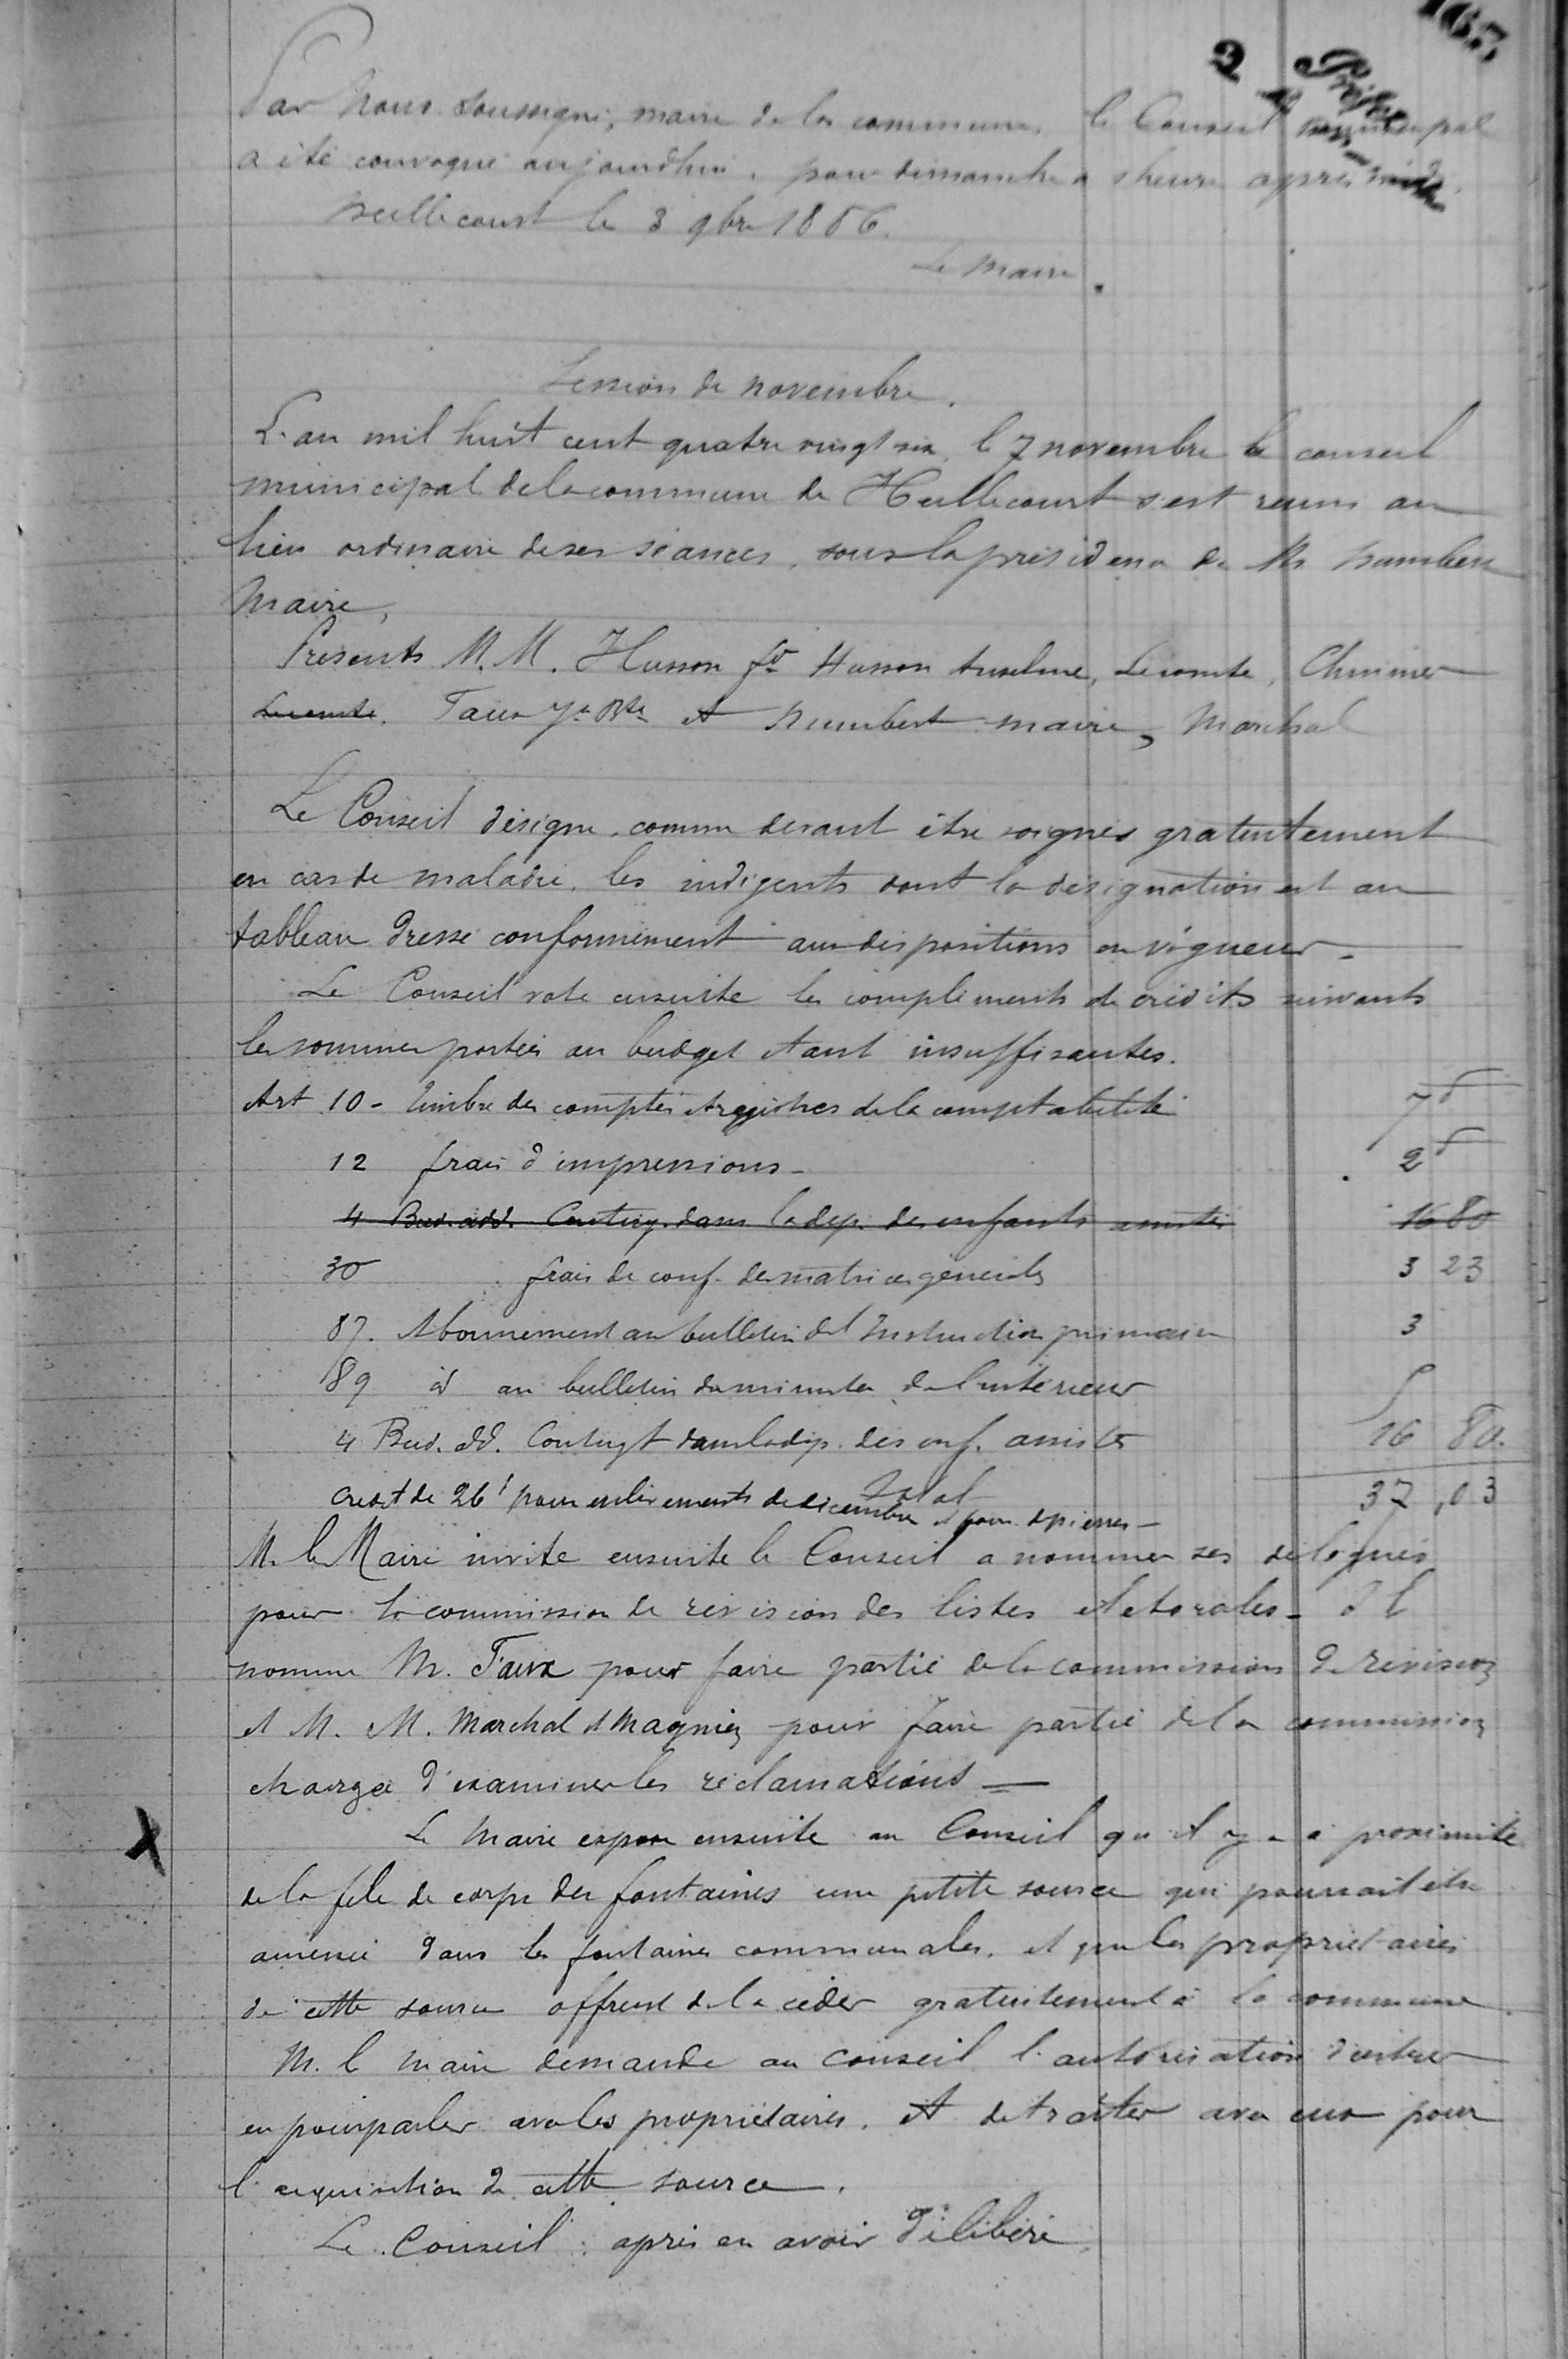 167
Par nous soussigné, maire de la commune, le Conseil municipal
a été convoqué aujourdhui, pour dimanche a 1 heure après midi.
heillecourt le 3 9bre 1886.
Le Maire.
Session de novembre.
L'an mil huit cent quatre vingt six, le 7 novembre le conseil
municipal de la commune de Heillecourt s'est reuni au
lieu ordinaire de ses séances, sous la présidence de Mr humbert
Maire,
Présents M.M. Husson fd Husson Anselme, Lecomte, Chiminer
Lecomte, Taux Jn Bte et humbert maire, Marchal
Le Conseil désigne, comme devant être soignés gratuitement
en cas de maladie, les indigents dont la désignation est au
tableau dressé conformément aux dispositions en vigueur.
Le Conseil vote ensuite les compléments de crédits suivants
les sommes portées au budget étant insuffisantes.
Art 10 - timbre des comptes et registres de la comptabilité 7f
12 frais d'impressions - 2f
4 Bud. add. Conting. dans la dep. des enfants assistés 16 80
30 frais de conf. des matrices générales 3 23
87. Abonnement au bulletin de l'Instruction primaire 3
89 id au bulletin du ministère de l'intérieur 5
4 Bud. add. Contingt dans la dép. des enf. assistés 16 80.
Total 37,03
Credit de 26f pour enlèvements de décembre et pour dpierres -
M. le Maire invite ensuite le Conseil a nommer ses délégués
pour la commission de révision des listes électorales - Il
nomme M. Taux pour faire partie de la commission de révision
et M. M. Marchal et Magnien pour faire partie de la commission
chargée d'examiner les réclamations —
X Le Maire expose ensuite au Conseil qu'il y a à proximité
de la file de corps des fontaines une petite source qui pourrait être
amenée dans les fontaines communales, et que les propriétaires
de cette source offrent de la céder gratuitement à la commune.
M. le maire demande au conseil l'autorisation d'entrer
en pourparler avec les propriétaires, et de traiter avec eux pour
l'acquisition de cette source.
Le Conseil : après en avoir délibéré